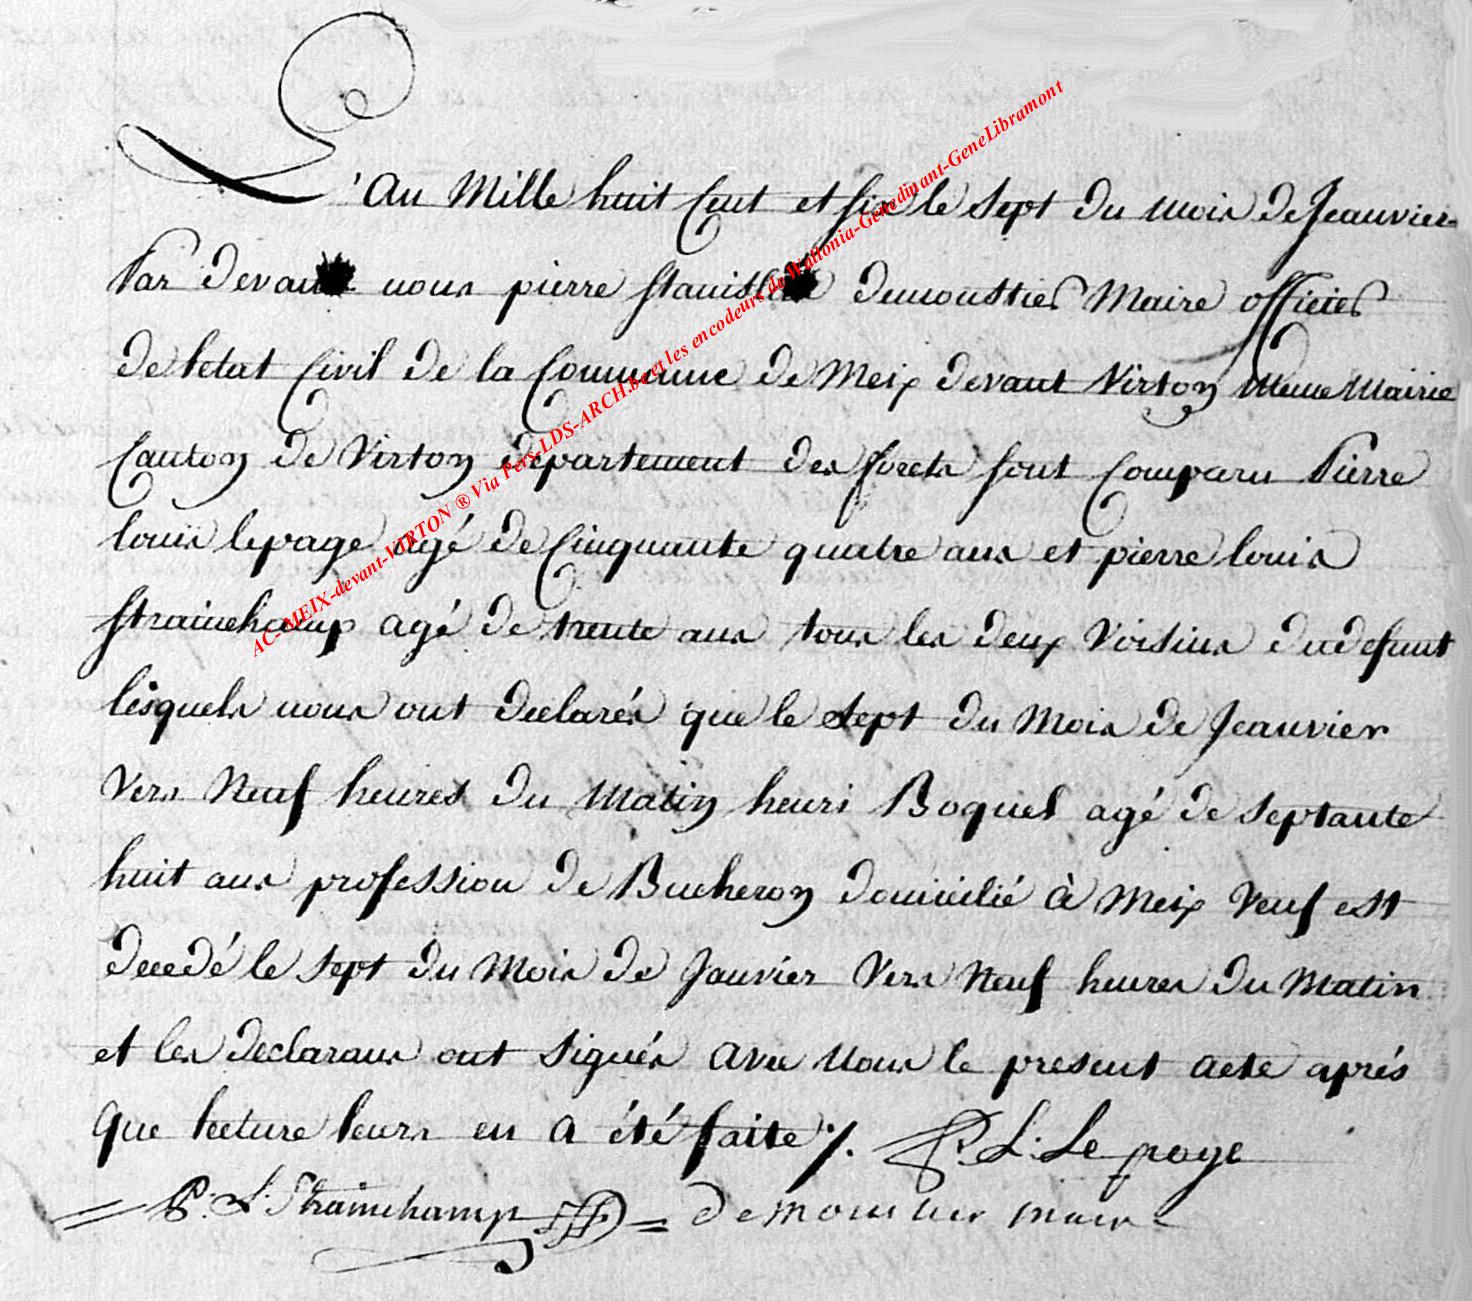 L'an Mille huit Cent et six le sept du mois de Jeanvier
Par devant nous pierre stanislas demoustier Maire officier
de l'etat Civil de la Commune de Meix devant Virton meme Mairie
Canton de Virton departement des forets sont Comparu Pierre
louis lepage agé de Cinquante quatre ans et pierre louis
strainchamp agé de trente ans tous les deux Voisins du defunt
lesquels nous ont declarés que le sept du Mois de Jeanvier
Vers Neuf heures du Matin henri Boquel agé de septante
huit ans profession de Bucheron domicilié à Meix Veuf est
decedé le sept du Mois de Janvier Vers Neuf heures du Matin
et les declarans ont signés avec Nous le present acte aprés
que lecture leurs en a été faite %. P. L. Le page
P. L. Strainchamp = demoustier maire
AC-MEIX-devant-VIRTON ® Via Pers-LDS-ARCH.be et les encodeurs de Wallonia-Genedinant-GeneLibramont